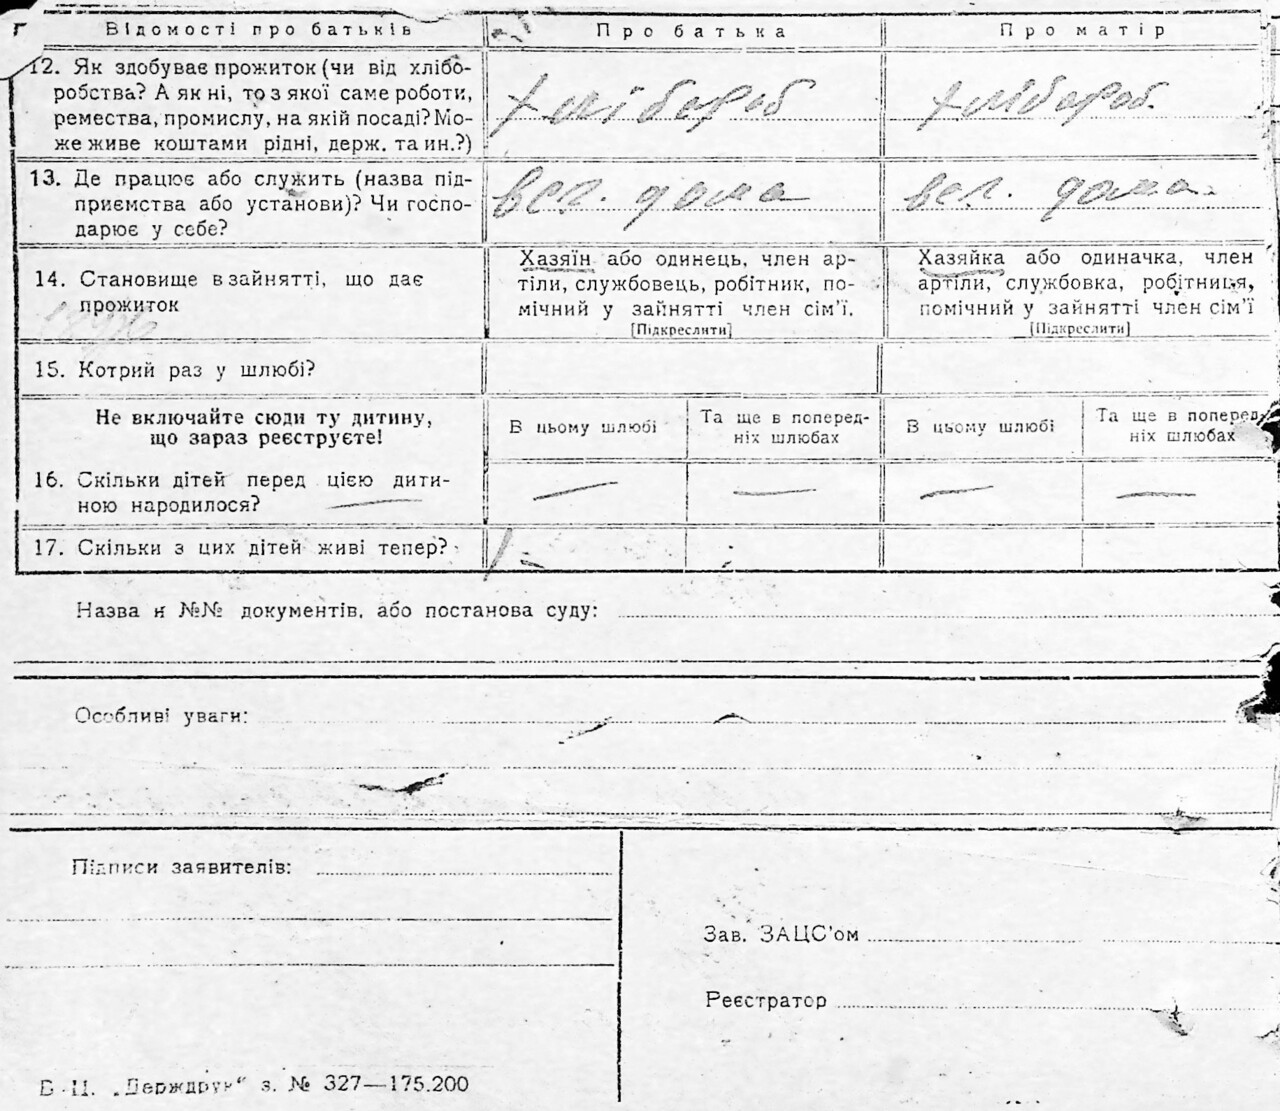 Відомості про батьків Про батька Про матір
12. Як здобуває прожиток (чи від хлібо-
робства? А як ні, то з якої саме роботи,
ремества, промислу, на якій посаді? Мо-
же живе коштами рідні, держ. та ин.?)
хлібороб хлібороб
13. Де працює або служить (назва під-
приємства або установи)? Чи госпо-
дарює у себе?
дома дома
14. Становище в зайнятті, що дає
прожиток
Хазяїн або одинець, член ар-
тіли, службовець, робітник, по-
мічний у зайнятті член сім'ї.
[Підкреслити]
Хазяйка або одиначка, член
артіли, службовка, робітниця,
помічний у зайнятті член сім'ї
[Підкреслити]
15. Котрий раз у шлюбі?
Не включайте сюди ту дитину,
що зараз реєструєте!
В цьому шлюбі
Та ще в поперед-
ніх шлюбах
В цьому шлюбі
Та ще в поперед-
ніх шлюбах
16. Скільки дітей перед цією дити-
ною народилося?
— — — — —
17. Скільки з цих дітей живі тепер?
Назва й №№ документів, або постанова суду:
Особливі уваги:
Підписи заявителів:
Зав. ЗАЦС'ом
Реєстратор
"Держдрук" з. № 327—175.200